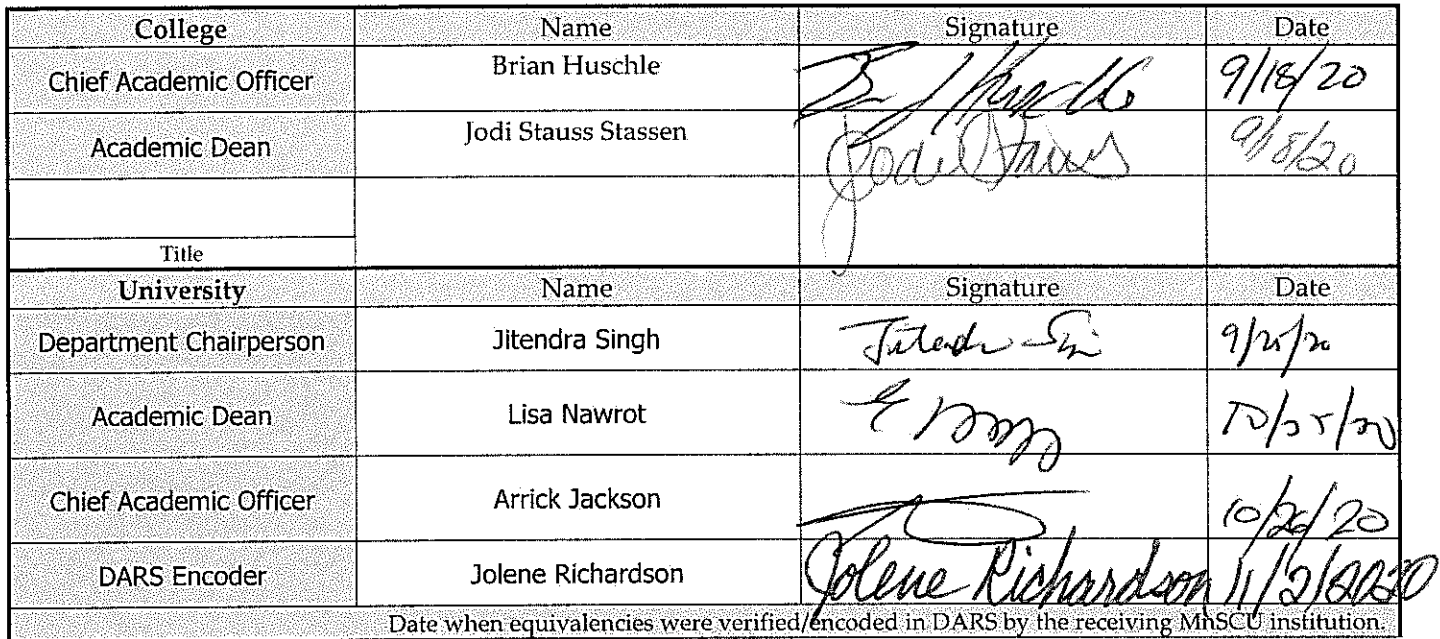 College Name Signature Date
Chief Academic Officer Brian Huschle 9/18/20
Academic Dean Jodi Stauss Stassen Jodi Stauss 9/18/20
Title
University Name Signature Date
Department Chairperson Jitendra Singh 9/25/20
Academic Dean Lisa Nawrot
Chief Academic Officer Arrick Jackson 10/26/20
DARS Encoder Jolene Richardson Jolene Richardson 11/2/2020
Date when equivalencies were verified/encoded in DARS by the receiving MnSCU institution.